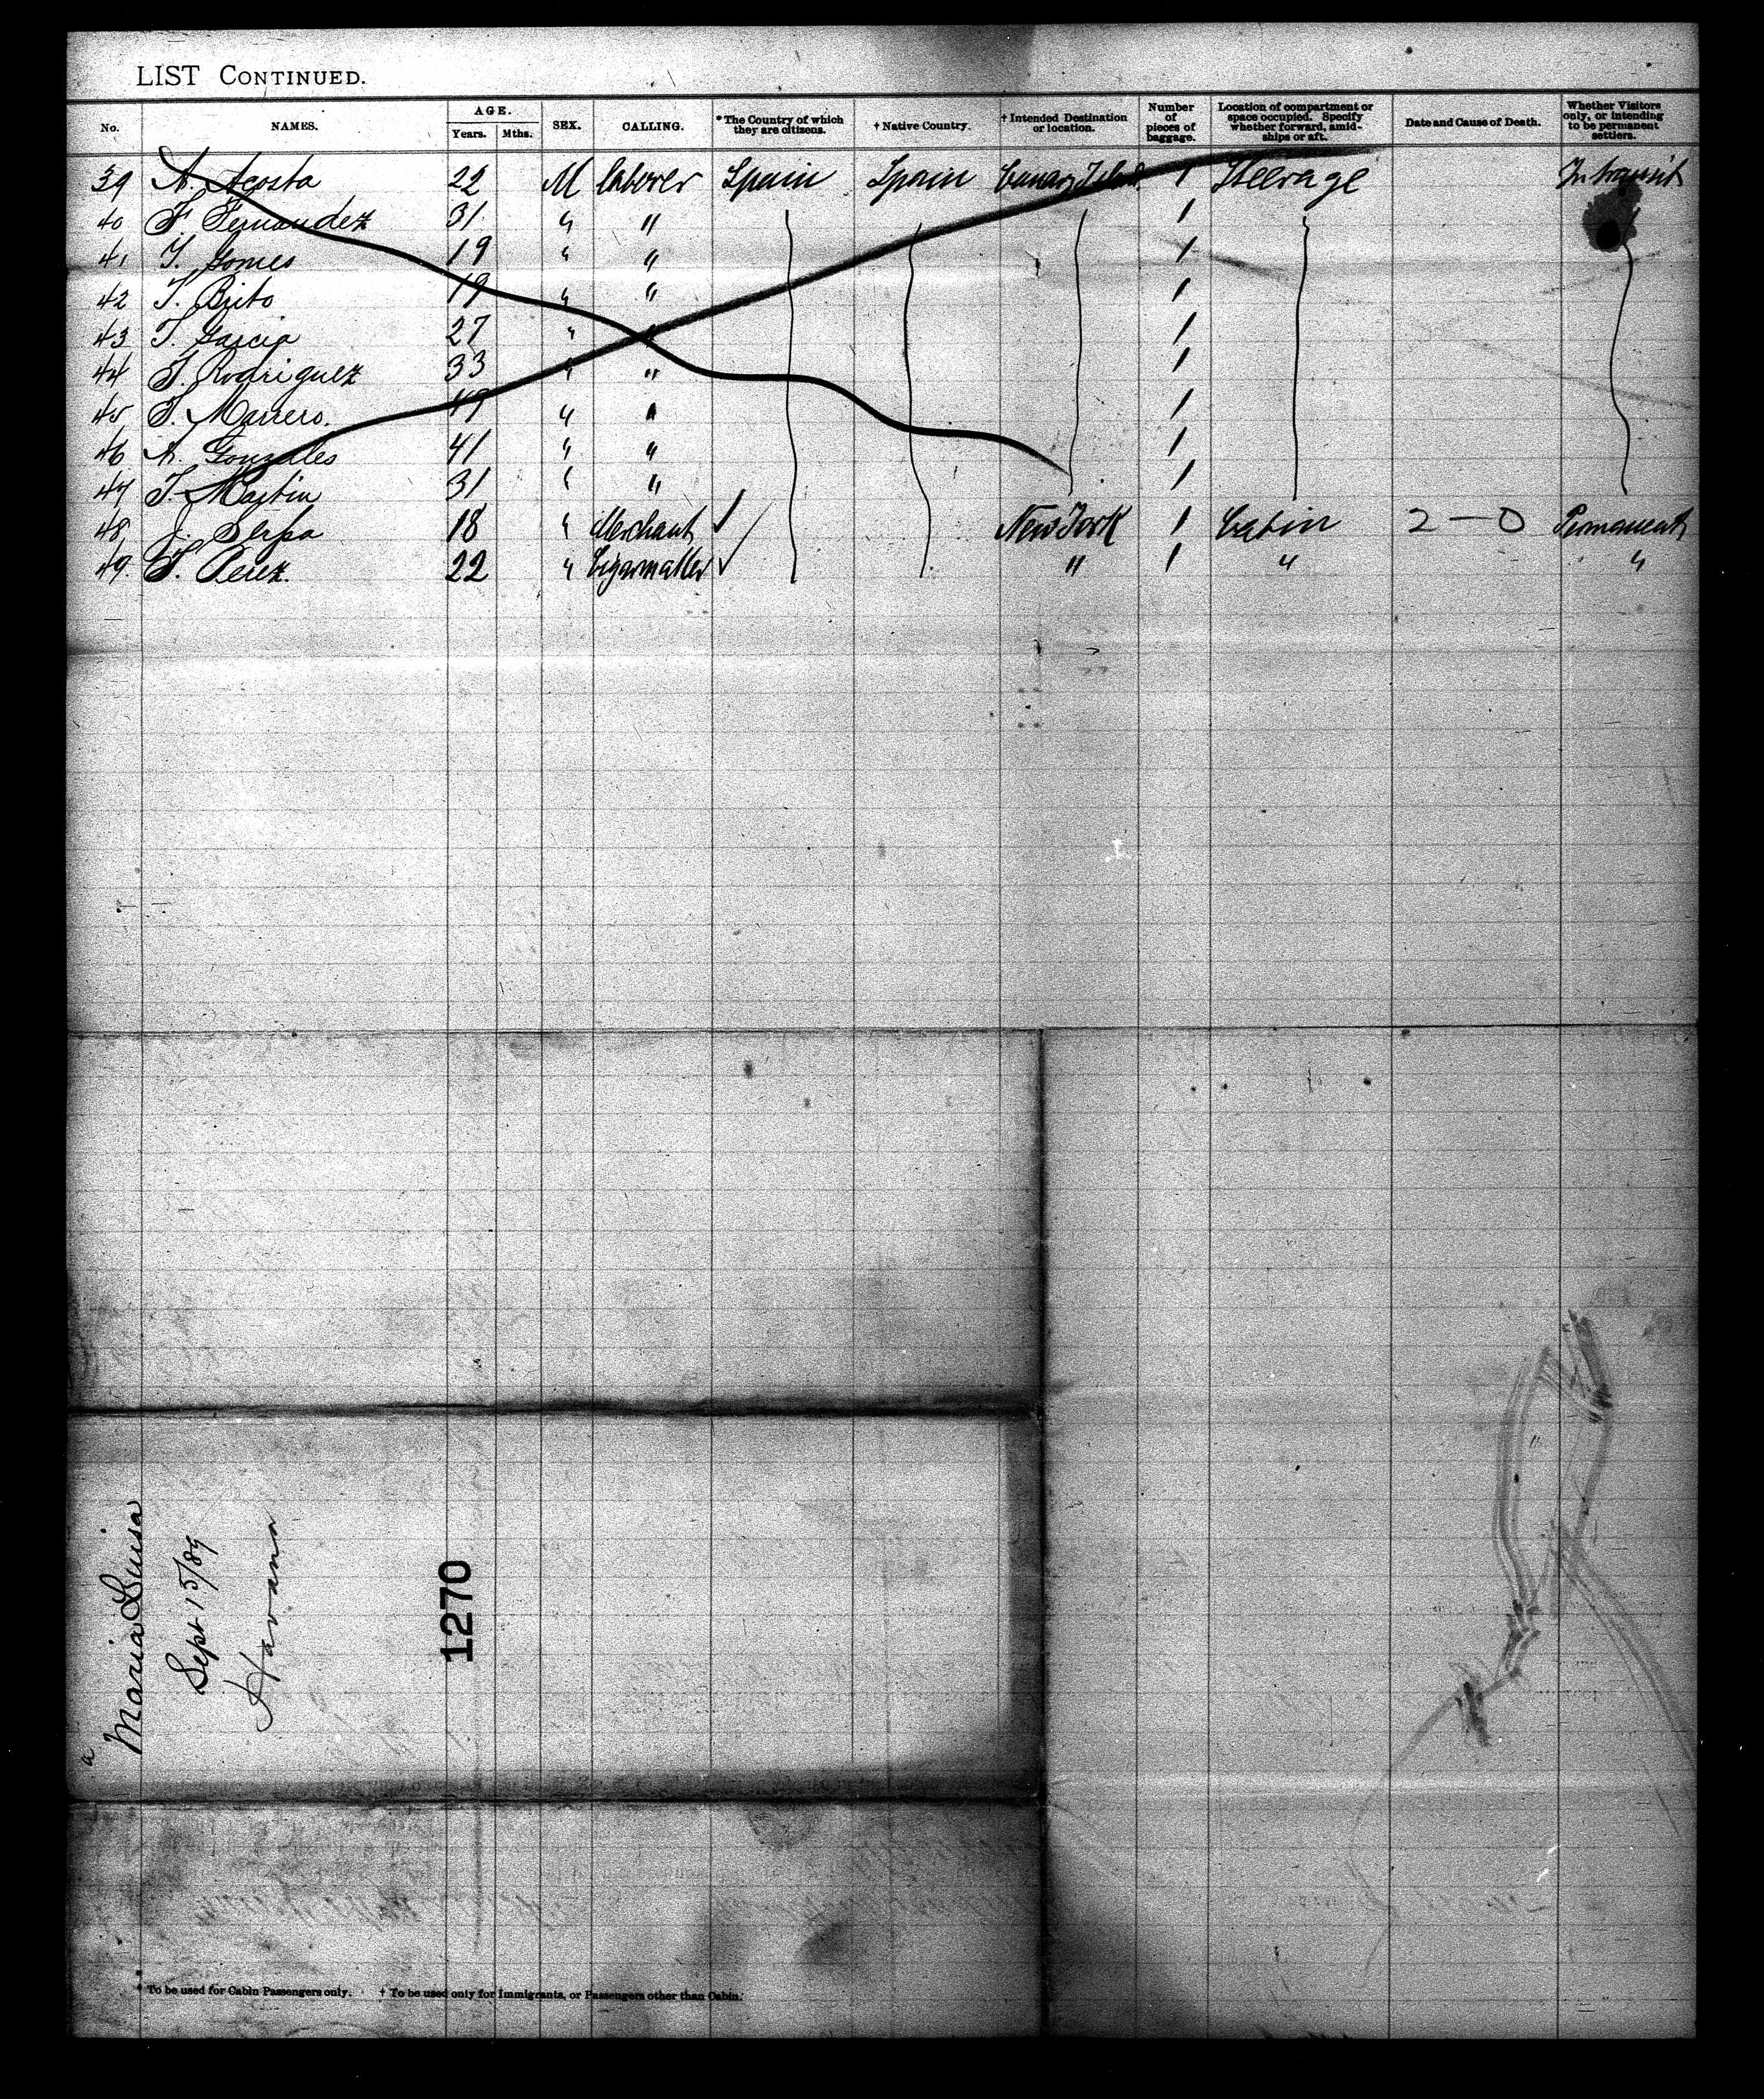 LIST CONTINUED.
No. NAMES. AGE. Years. Mths. SEX. CALLING. *The Country of which they are citizens. † Native Country. † Intended Destination or location. Number of pieces of baggage. Location of compartment or space occupied. Specify whether forward, amidships or aft. Date and Cause of Death. Whether Visitors only, or intending to be permanent settlers.
39 A. Acosta 22 M laborer Spain Spain Canary Island. 1 Steerage In transit
40 F. Fernandez 31 " " 1
41 Gomes 19 " " 1
42 T. Brito 19 " " 1
43 T. Garcia 27 " " 1
44 Rodriguez 33 " " 1
45 Marrero. 19 " " 1
46 A. Gonzales 41 " " 1
47 T. Martin 31 " " 1
48 J. Serpa 18 " Merchant ✓ New York 1 Cabin 2 — 0 Permanent
49. Perez. 22 " Cigarmaker ✓ " 1 " "
a
Maria Luisa
Sept 15/89
Havana
1270
* To be used for Cabin Passengers only. † To be used only for Immigrants, or Passengers other than Cabin.